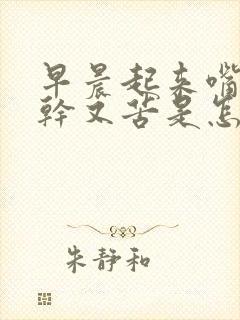 早晨起来嘴
幹又苦是怎
朱静和